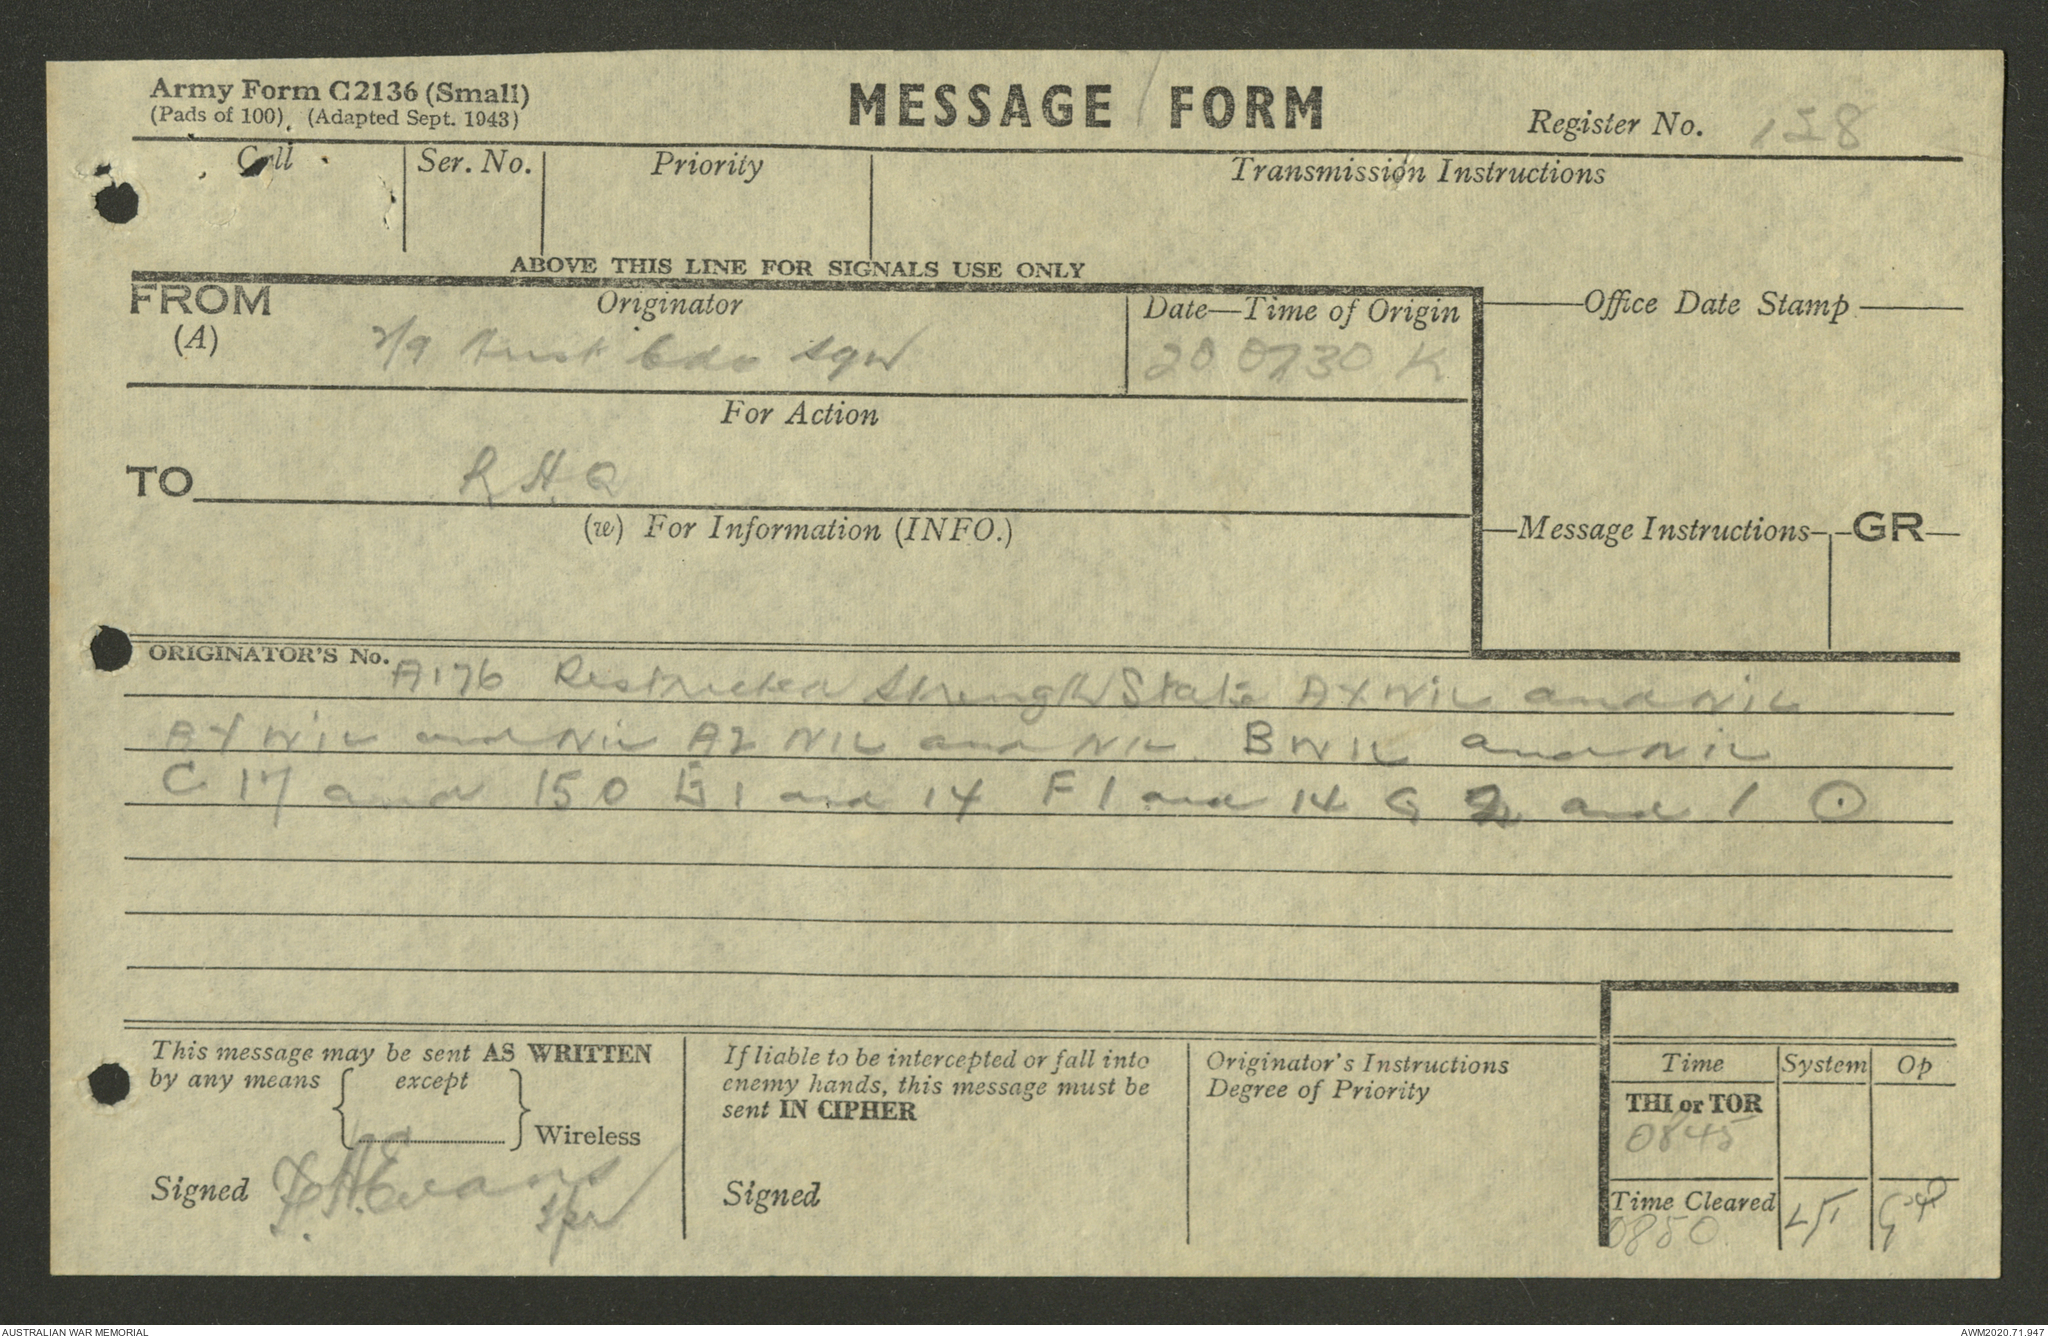 Army Form C2136 (Small)
(Pads of 100). (Adapted Sept. 1943)
MESSAGE FORM
Register No. 158
Call
Ser. No.
Priority
Transmission Instructions
ABOVE THIS LINE FOR SIGNALS USE ONLY
FROM
(A)
Originator
2/9 Aust Cdo Sqn
Date—Time of Origin
20 0730 K
Office Date Stamp
For Action
TO
R H Q
(w) For Information (INFO.)
Message Instructions
GR
ORIGINATOR'S No.
A176 Restricted Strength State AX NIL and NIL
AY NIL and NIL AZ NIL and NIL B NIL and NIL
C 17 and 150 E 1 and 14 F 1 and 14 G 2 and 1 ⊙
This message may be sent AS WRITTEN
by any means { except }
Wireless
Signed F. H. Evans
If liable to be intercepted or fall into
enemy hands, this message must be
sent IN CIPHER
Signed
Originator's Instructions
Degree of Priority
Time System Op
THI or TOR
0845
Time Cleared
0850
AUSTRALIAN WAR MEMORIAL
AWM2020.71.947